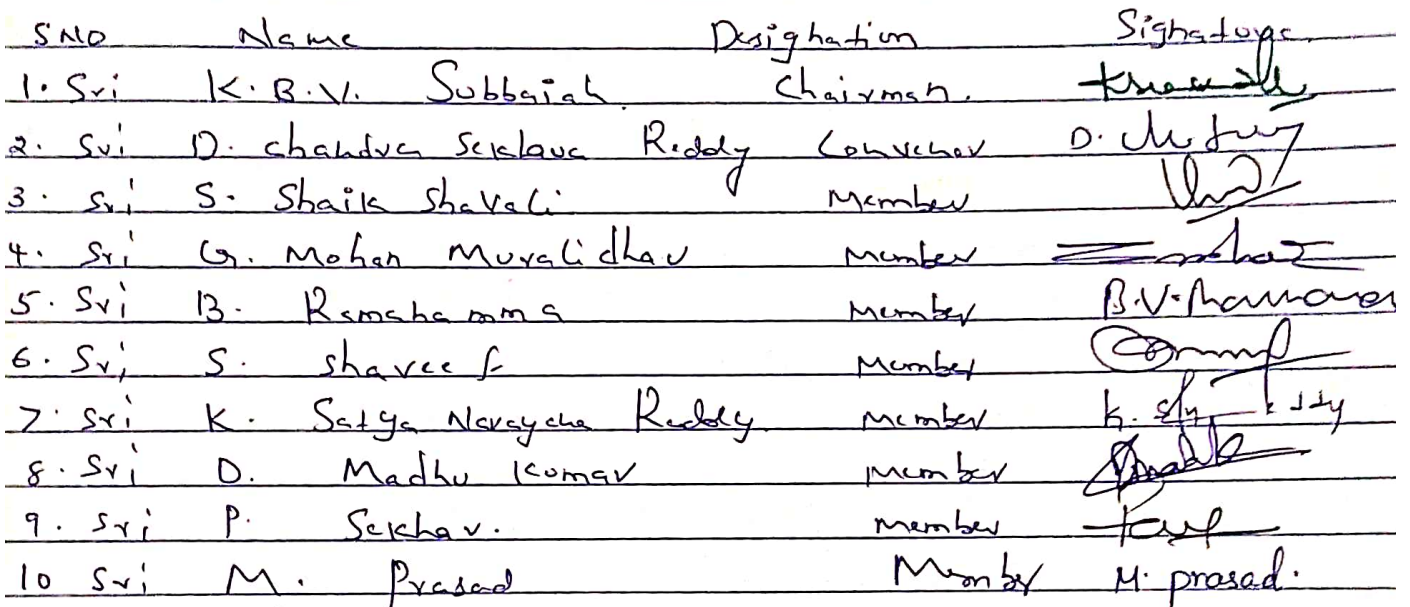 S NO Name Designation Signature
1. Sri K. B. V. Subbaiah Chairman.
2. Sri D. Chandra Sekhara Reddy Convenor D.
3. Sri S. Shaik Shavali Member
4. Sri G. Mohan Muralidhar Member
5. Sri B. Ramanamma Member B.V.
6. Sri S. Shareef Member
7. Sri K. Satya Narayana Reddy Member K.
8. Sri D. Madhu Kumar Member
9. Sri P. Sekhar. Member
10 Sri M. Prasad Member M. prasad.